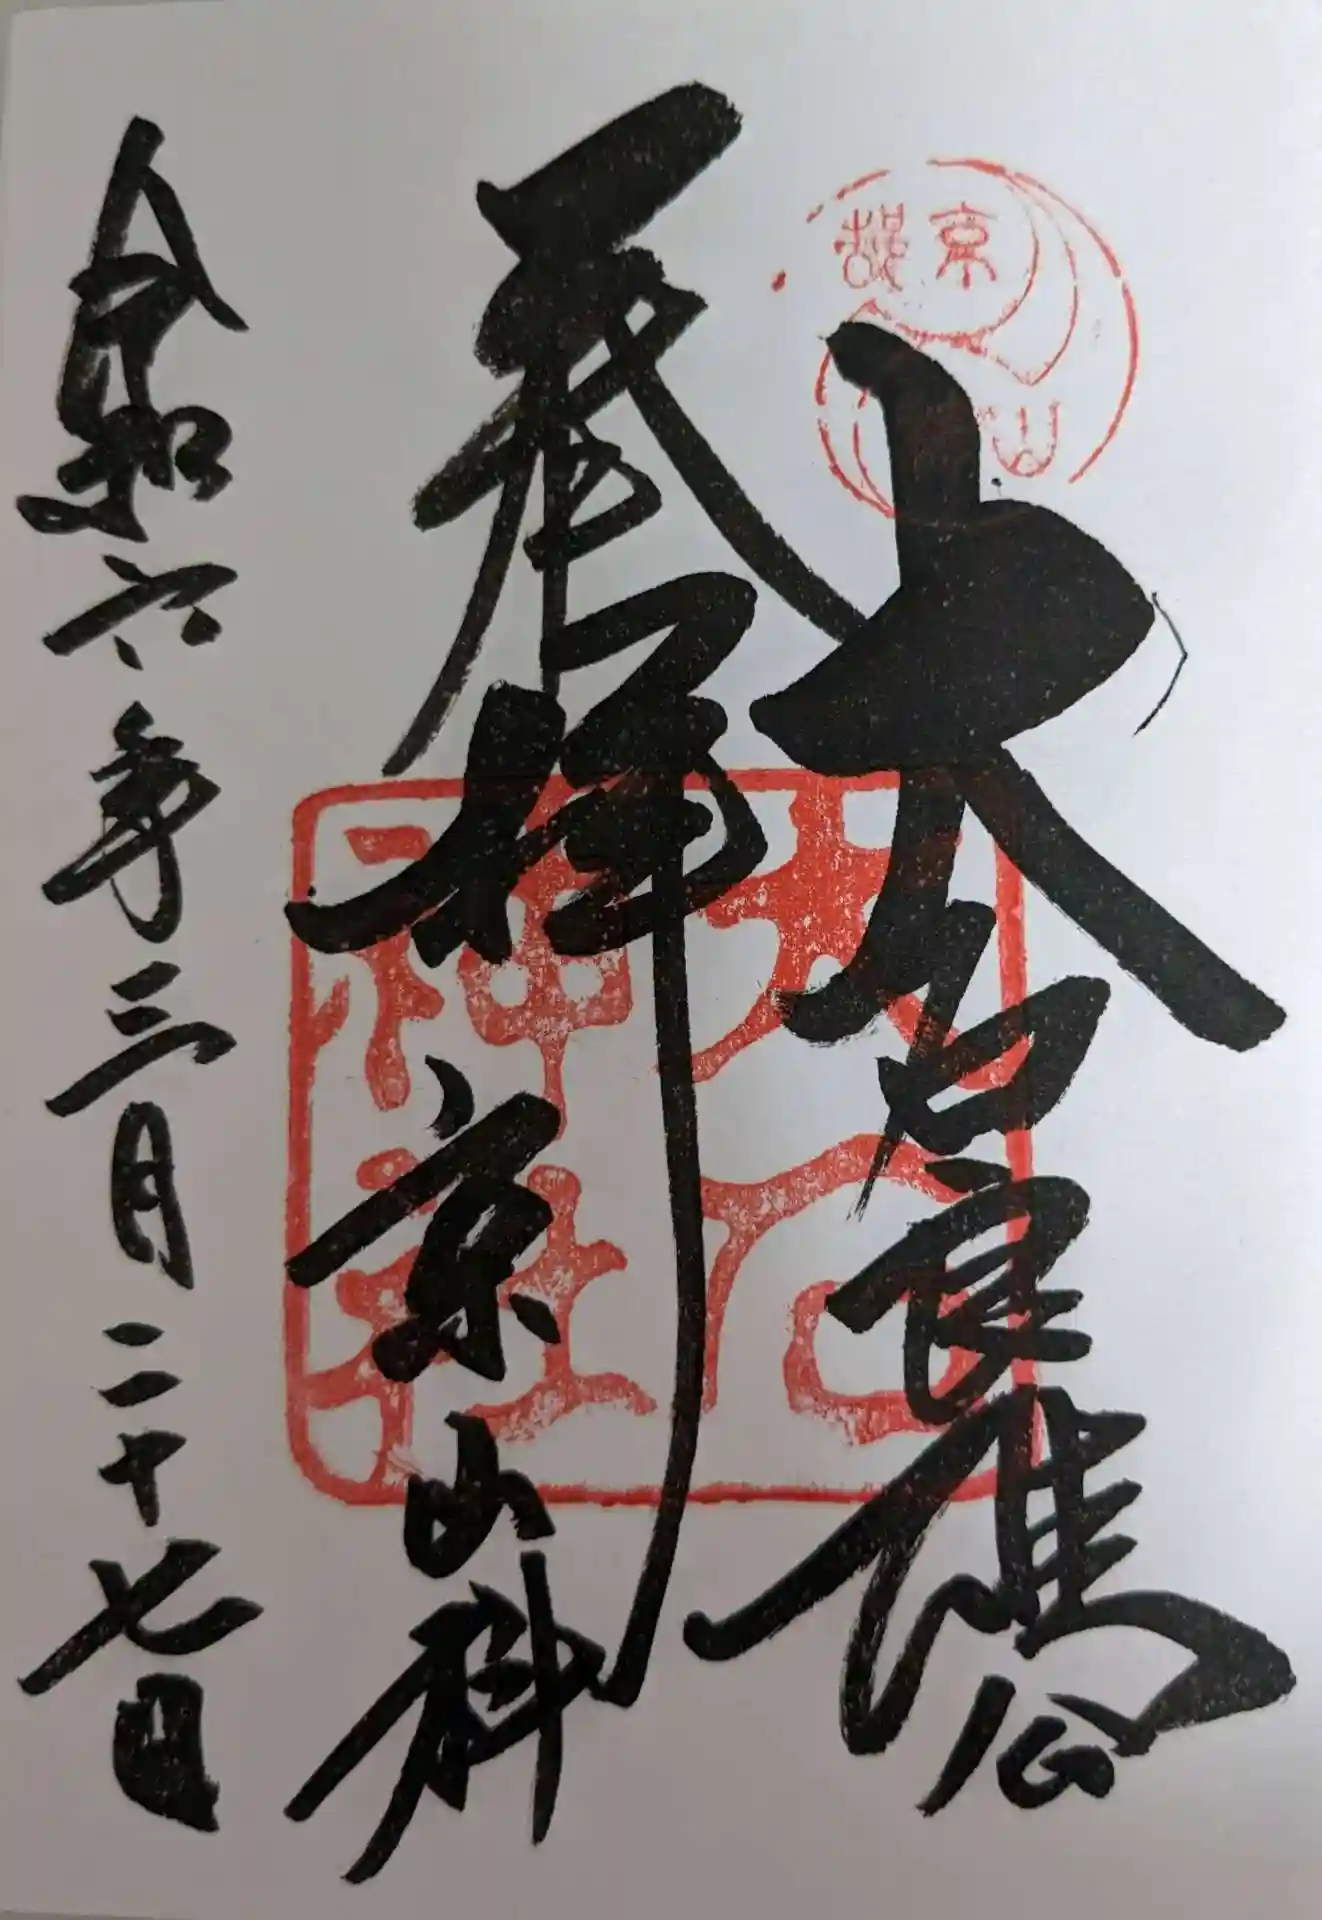 大石良雄公
奉拝 京山科
令和六年三月二十七日
大石神社